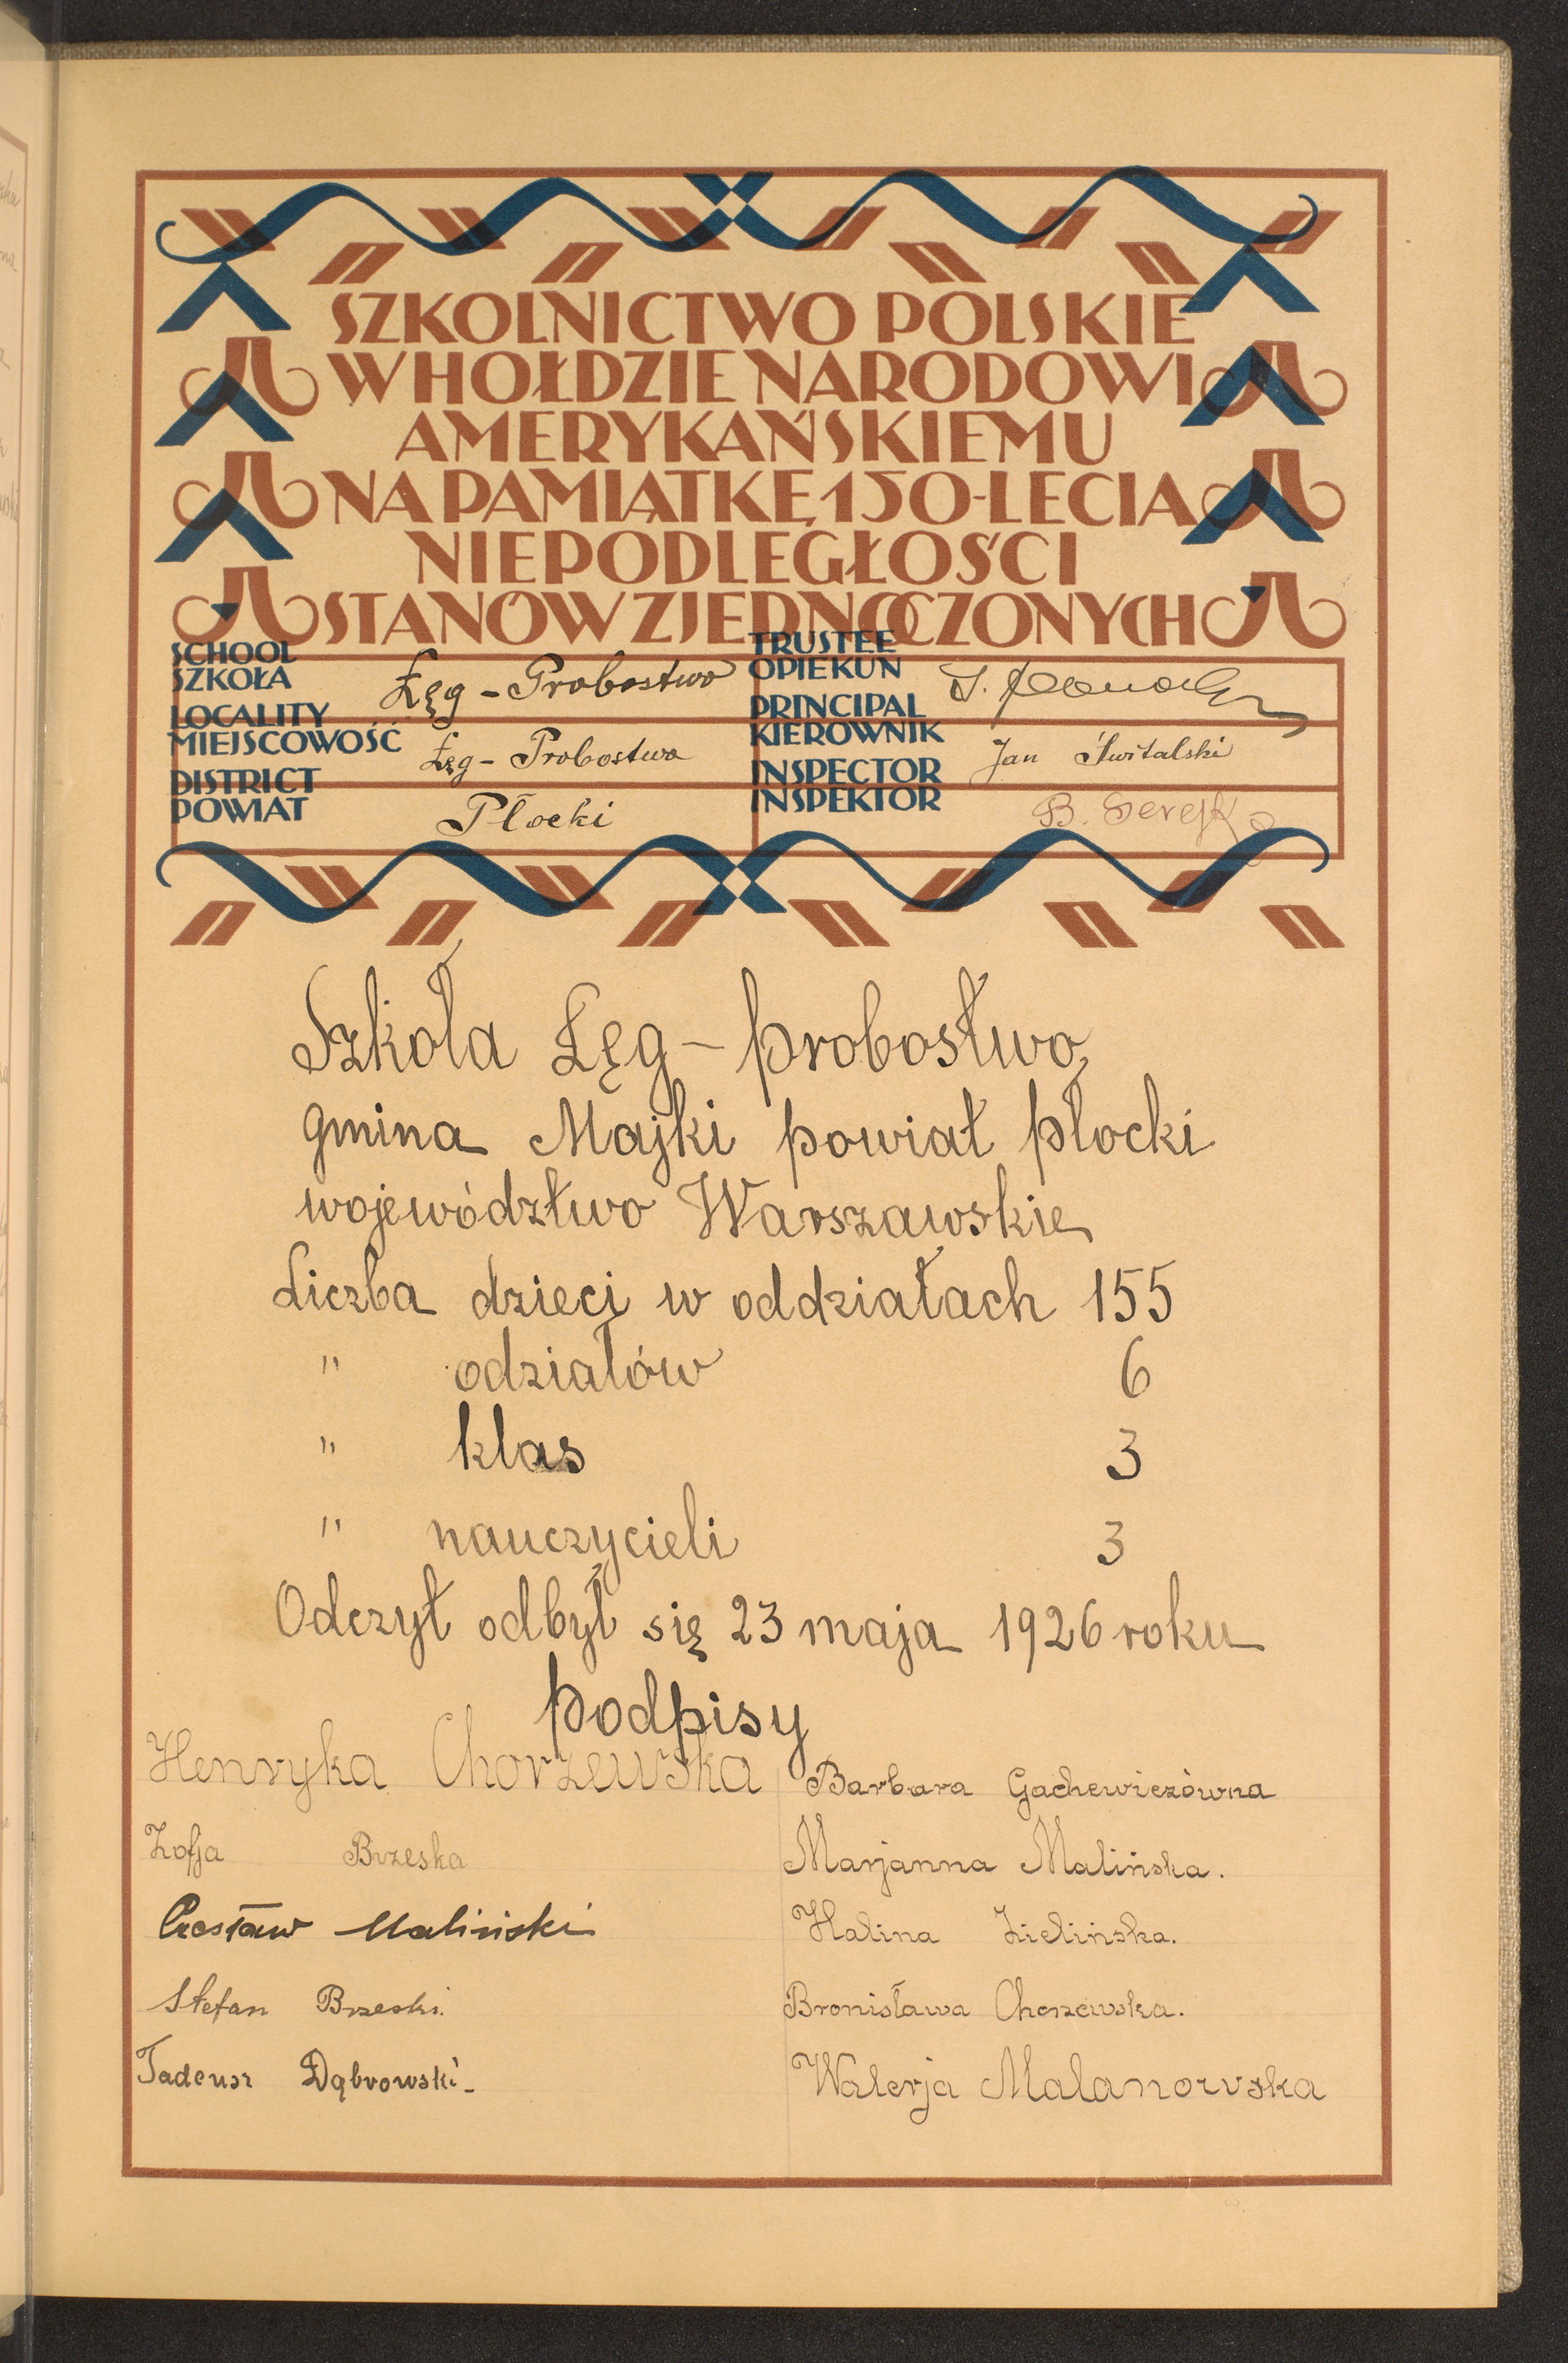 SZKOLNICTWO POLSKIE
W HOŁDZIE NARODOWI
AMERYKAŃSKIEMU
NA PAMIĄTKĘ 150-LECIA
NIEPODLEGŁOŚCI
STANÓW ZJEDNOCZONYCH
SCHOOL
SZKOŁA Łęg - Probostwo
LOCALITY
MIEJSCOWOŚĆ Łęg - Probostwo
DISTRICT
POWIAT Płocki
TRUSTEE
OPIEKUN
PRINCIPAL
KIEROWNIK Jan Świtalski
INSPECTOR
INSPEKTOR B. Gerejko
Szkoła Łęg - probostwo,
gmina Majki powiat płocki
województwo Warszawskie
Liczba dzieci w oddziałach 155
" odziałów 6
" klas 3
" nauczycieli 3
Odczyt odbył się 23 maja 1926 roku
podpisy
Henryka Chorzewska
Zofja Brzeska
Czesław Maliński
Stefan Brzeski.
Tadeusz Dąbrowski-
Barbara Gachewiczówna
Marjanna Malińska.
Halina Zielińska.
Bronisława Chorzewska.
Walerja Malanowska